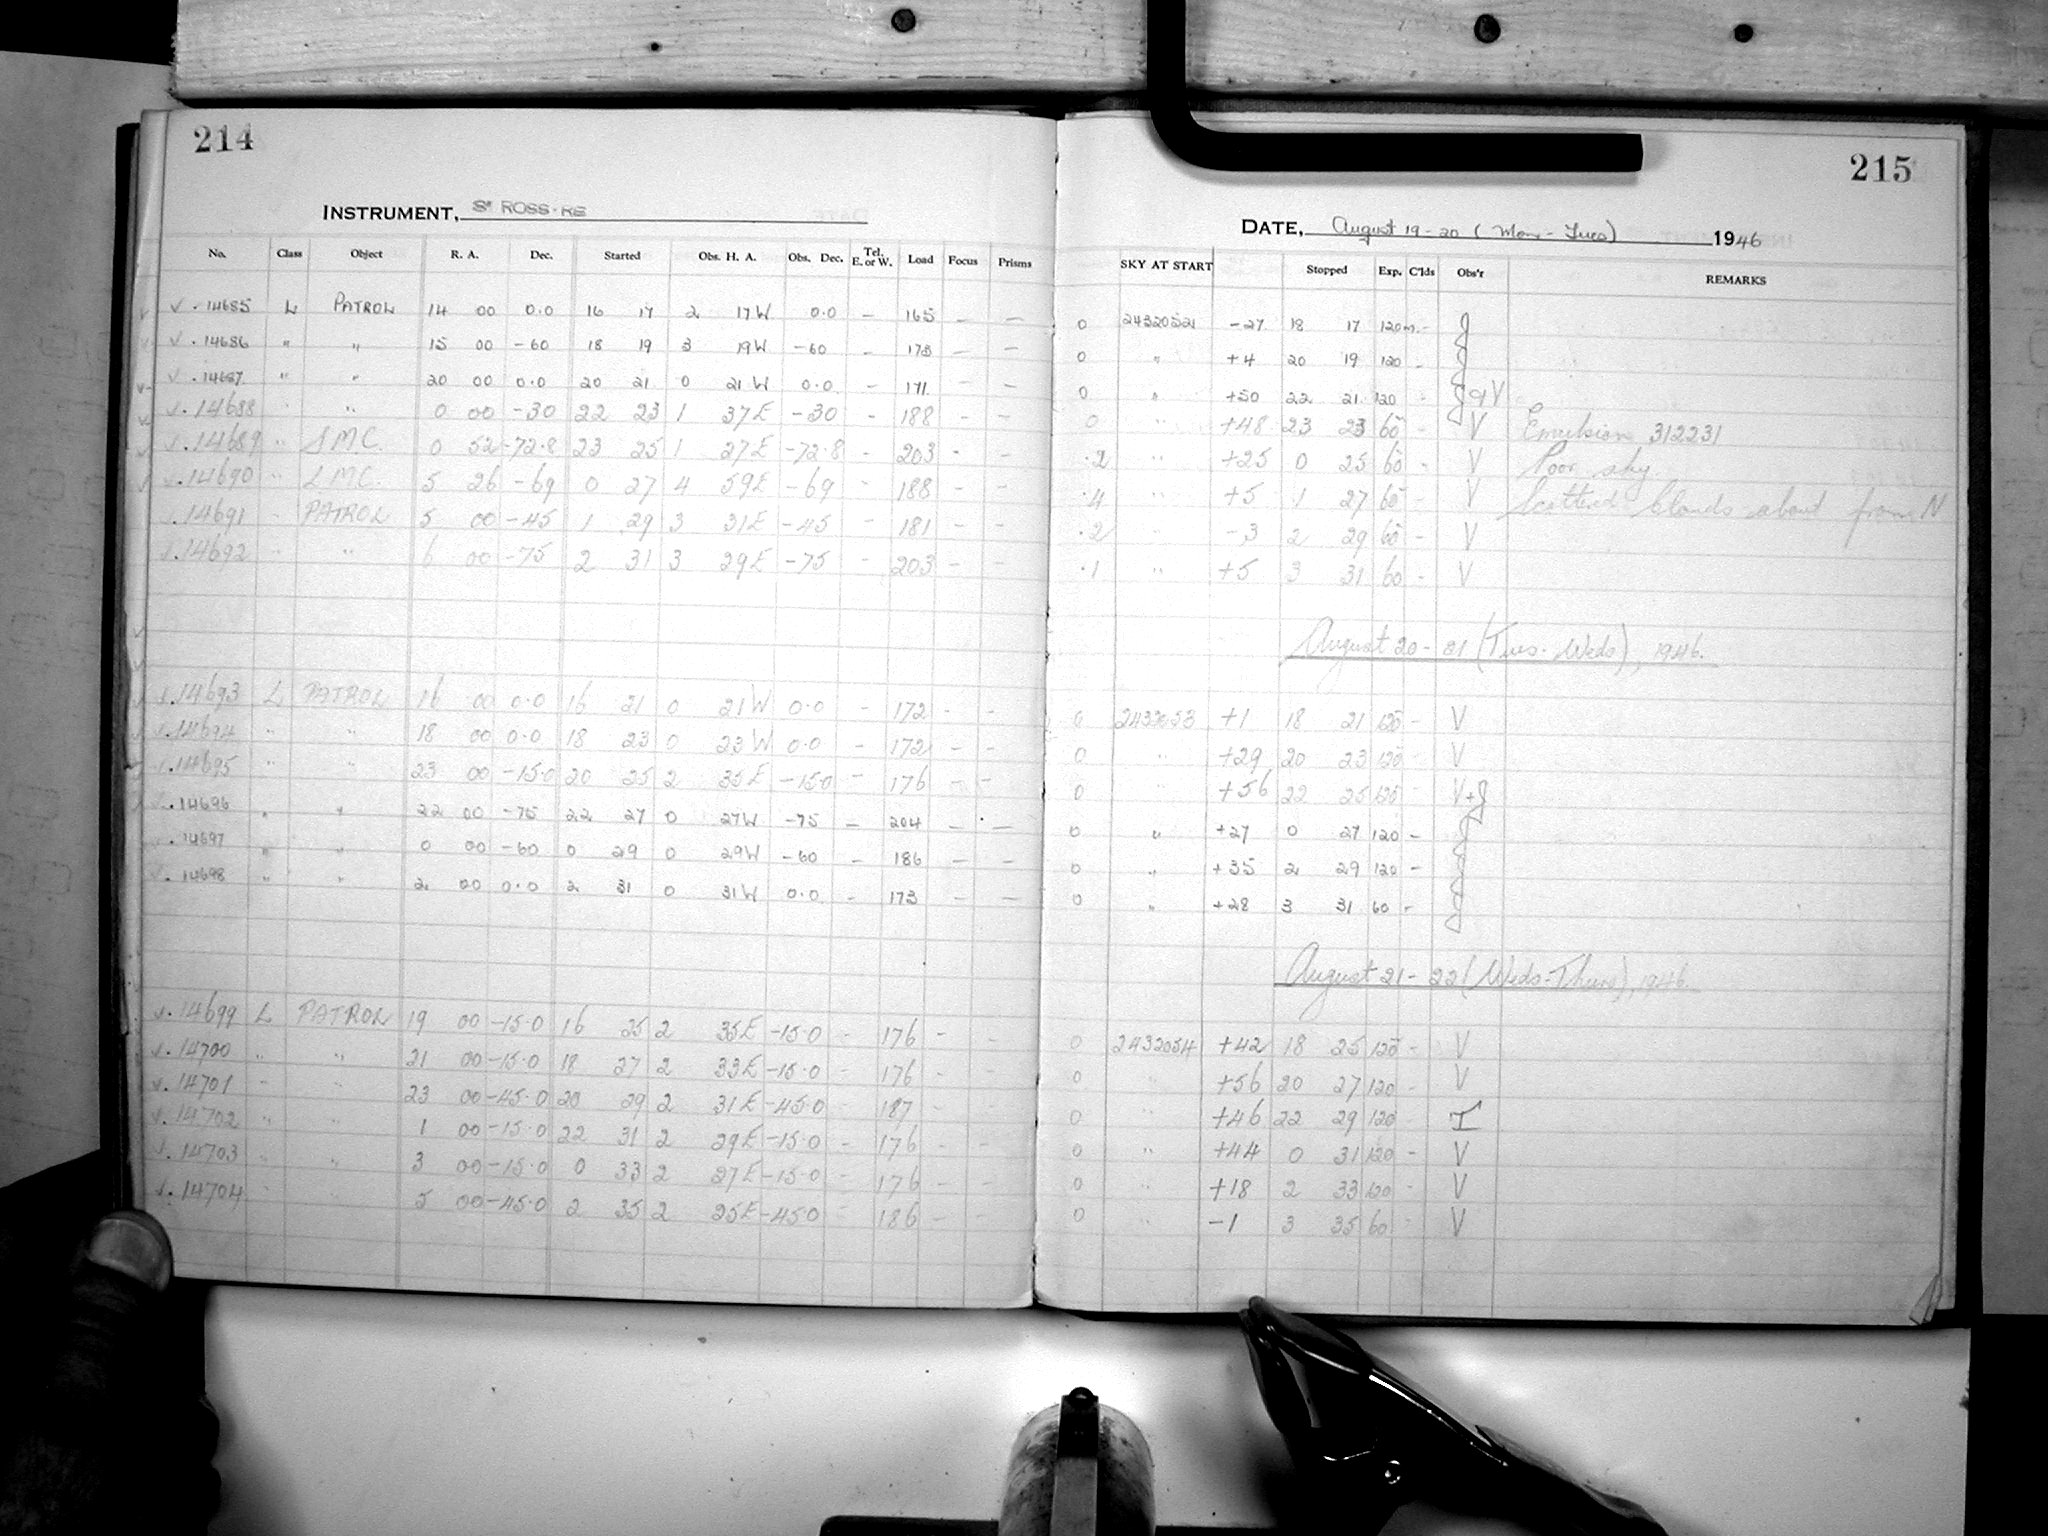 214
INSTRUMENT, ROSS-RS
No. Class Object R. A. Dec. Started Obs. H. A. Obs. Dec. Tel. E. or W. Load Focus Prisms
14685 L PATROL 14 00 0.0 16 17 2 17W 0.0 – 165 – –
14686 " " 15 00 -60 18 19 3 19W -60 – 173 – –
14687 " " 20 00 0.0 20 21 0 21W 0.0 – 171 – –
14688 " " 0 00 -30 22 23 1 37E -30 – 188 – –
14689 " S.M.C. 0 52 -72.8 23 25 1 27E -72.8 – 203 – –
14690 " L.M.C. 5 26 -69 0 27 4 59E -69 – 188 – –
14691 " PATROL 5 00 -45 1 29 3 31E -45 – 181 – –
14692 " " 6 00 -75 2 31 3 29E -75 – 203 – –
14693 L PATROL 16 00 0.0 16 21 0 21W 0.0 – 172 – –
14694 " " 18 00 0.0 18 23 0 23W 0.0 – 172 – –
14695 " " 23 00 -15.0 20 25 2 35E -15.0 – 176 – –
14696 " " 22 00 -75 22 27 0 27W -75 – 204 – –
14697 " " 0 00 -60 0 29 0 29W -60 – 186 – –
14698 " " 2 00 0.0 2 31 0 31W 0.0 – 173 – –
14699 L PATROL 19 00 -15.0 16 25 2 35E -15.0 – 176 – –
14700 " " 21 00 -15.0 18 27 2 33E -15.0 – 176 – –
14701 " " 23 00 -45.0 20 29 2 31E -45.0 – 187 – –
14702 " " 1 00 -15.0 22 31 2 29E -15.0 – 176 – –
14703 " " 3 00 -15.0 0 33 2 27E -15.0 – 176 – –
14704 " " 5 00 -45.0 2 35 2 25E -45.0 – 186 – –
215
DATE, August 19-20 (Mon-Tues) 1946
SKY AT START Stopped Exp. C'lds Obs'r REMARKS
0 -27 18 17 120m. –
0 " +4 20 19 120 –
0 " +50 22 21 120 – V
0 " +48 23 23 60 – V Emulsion 312231
.2 " +25 0 25 60 – V Poor sky.
.4 " +5 1 27 60 – V Scattered Clouds about from N
.2 " -3 2 29 60 – V
.1 " +5 3 31 60 – V
August 20-21 (Tues-Weds), 1946.
0 +1 18 21 120 – V
0 " +29 20 23 120 – V
0 " +56 22 25 120 – V+
0 " +27 0 27 120 –
0 " +35 2 29 120 –
0 " +28 3 31 60 –
August 21-22 (Weds-Thurs), 1946.
0 2432054 +42 18 25 120 – V
0 " +56 20 27 120 – V
0 " +46 22 29 120 – I
0 " +44 0 31 120 – V
0 " +18 2 33 120 – V
0 " -1 3 35 60 – V